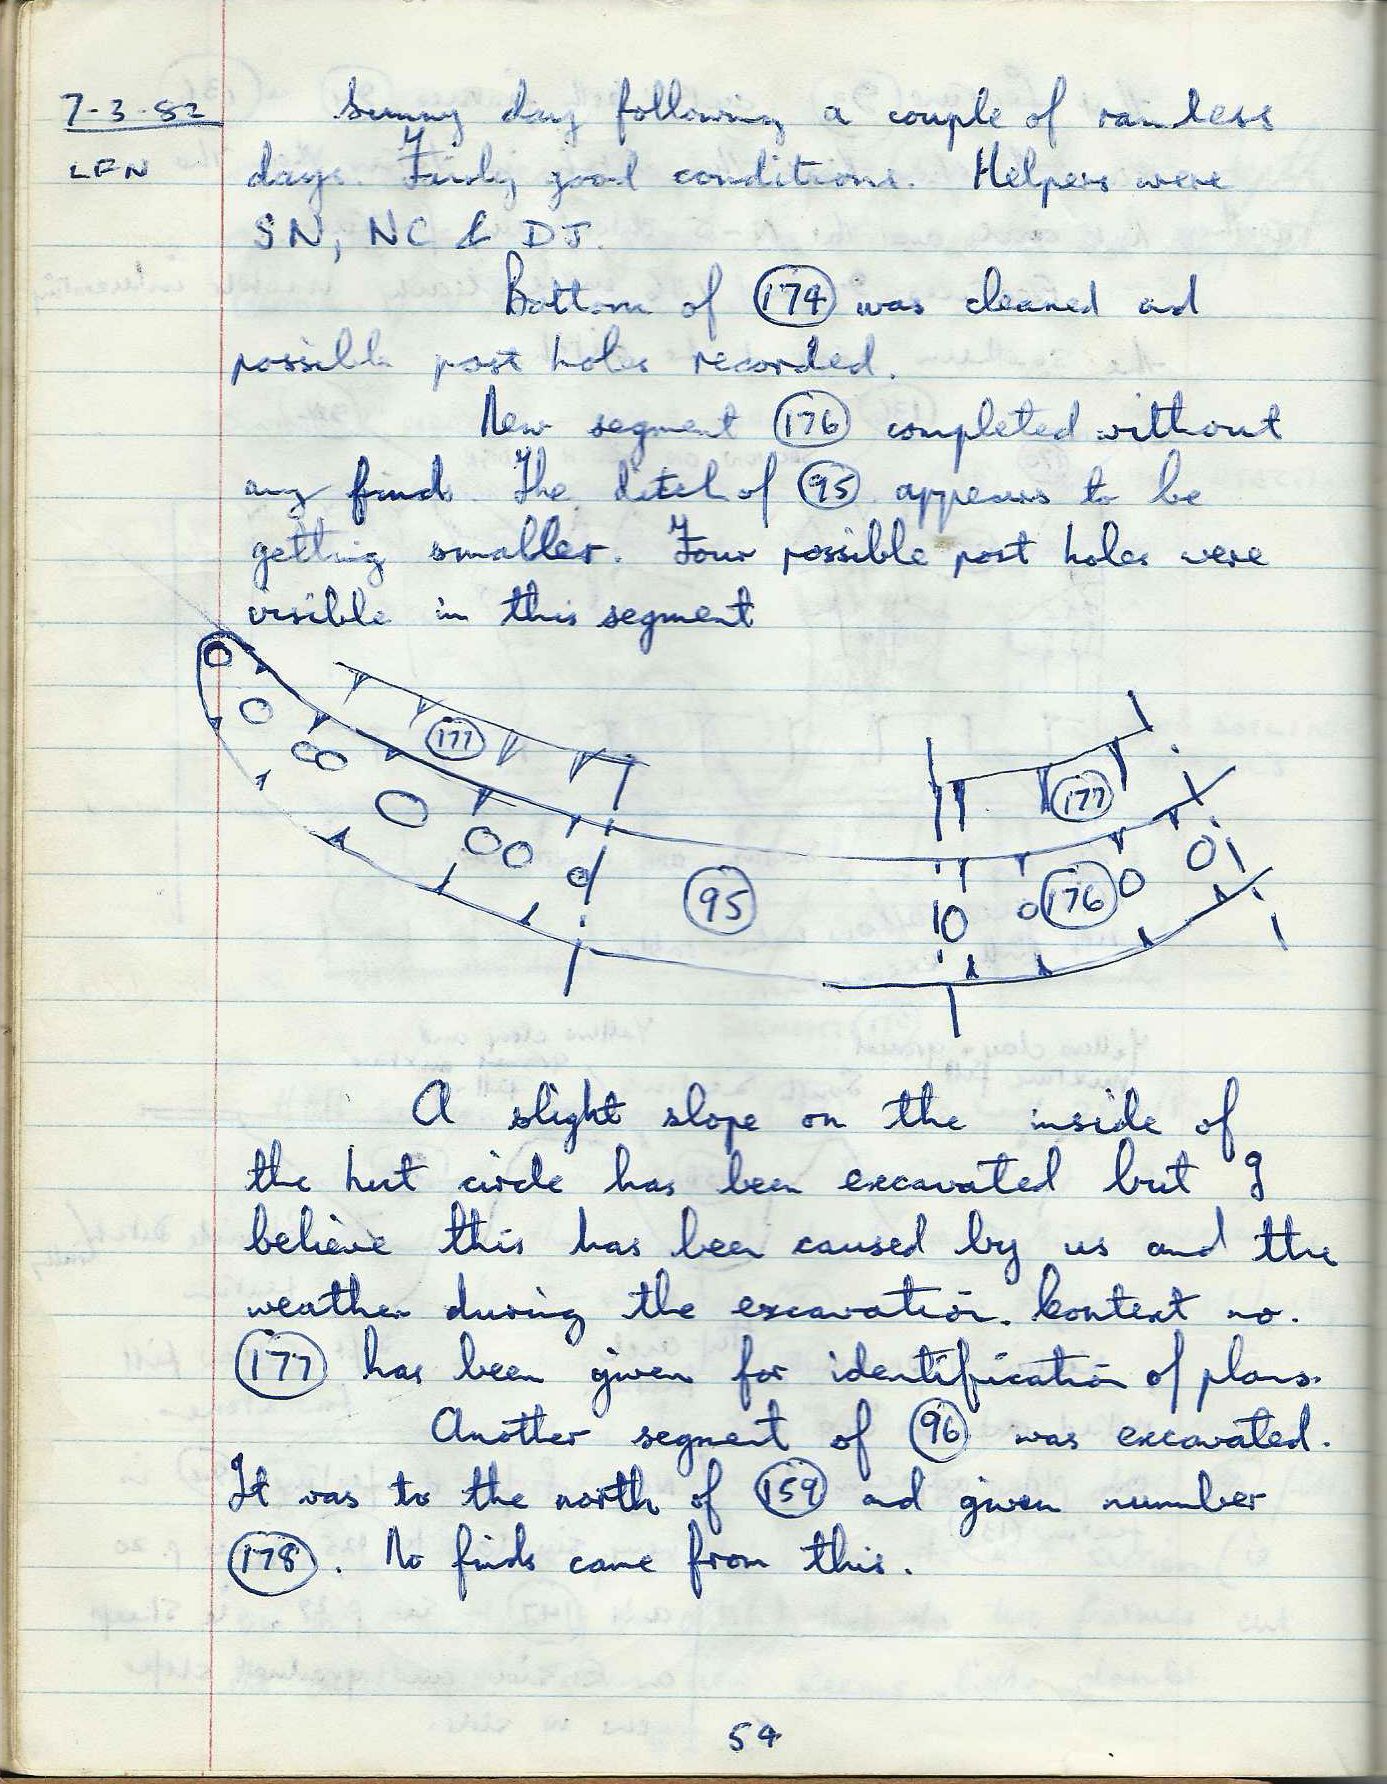 7-3-82
LFN
Sunny day following a couple of rainless
days. Fairly good conditions. Helpers were
SN, NC & DJ.
Bottom of 174 was cleaned ad
possible post holes recorded.
New segment 176 completed without
any finds. The ditch of 95 appears to be
getting smaller. Four possible post holes were
visible in this segment
177
177
95
176
A slight slope on the inside of
the hut circle has been excavated but I
believe this has been caused by us and the
weather during the excavation. Context no.
177 has been given for identification of plans.
Another segment of 96 was excavated.
It was to the north of 159 and given number
178. No finds came from this.
54